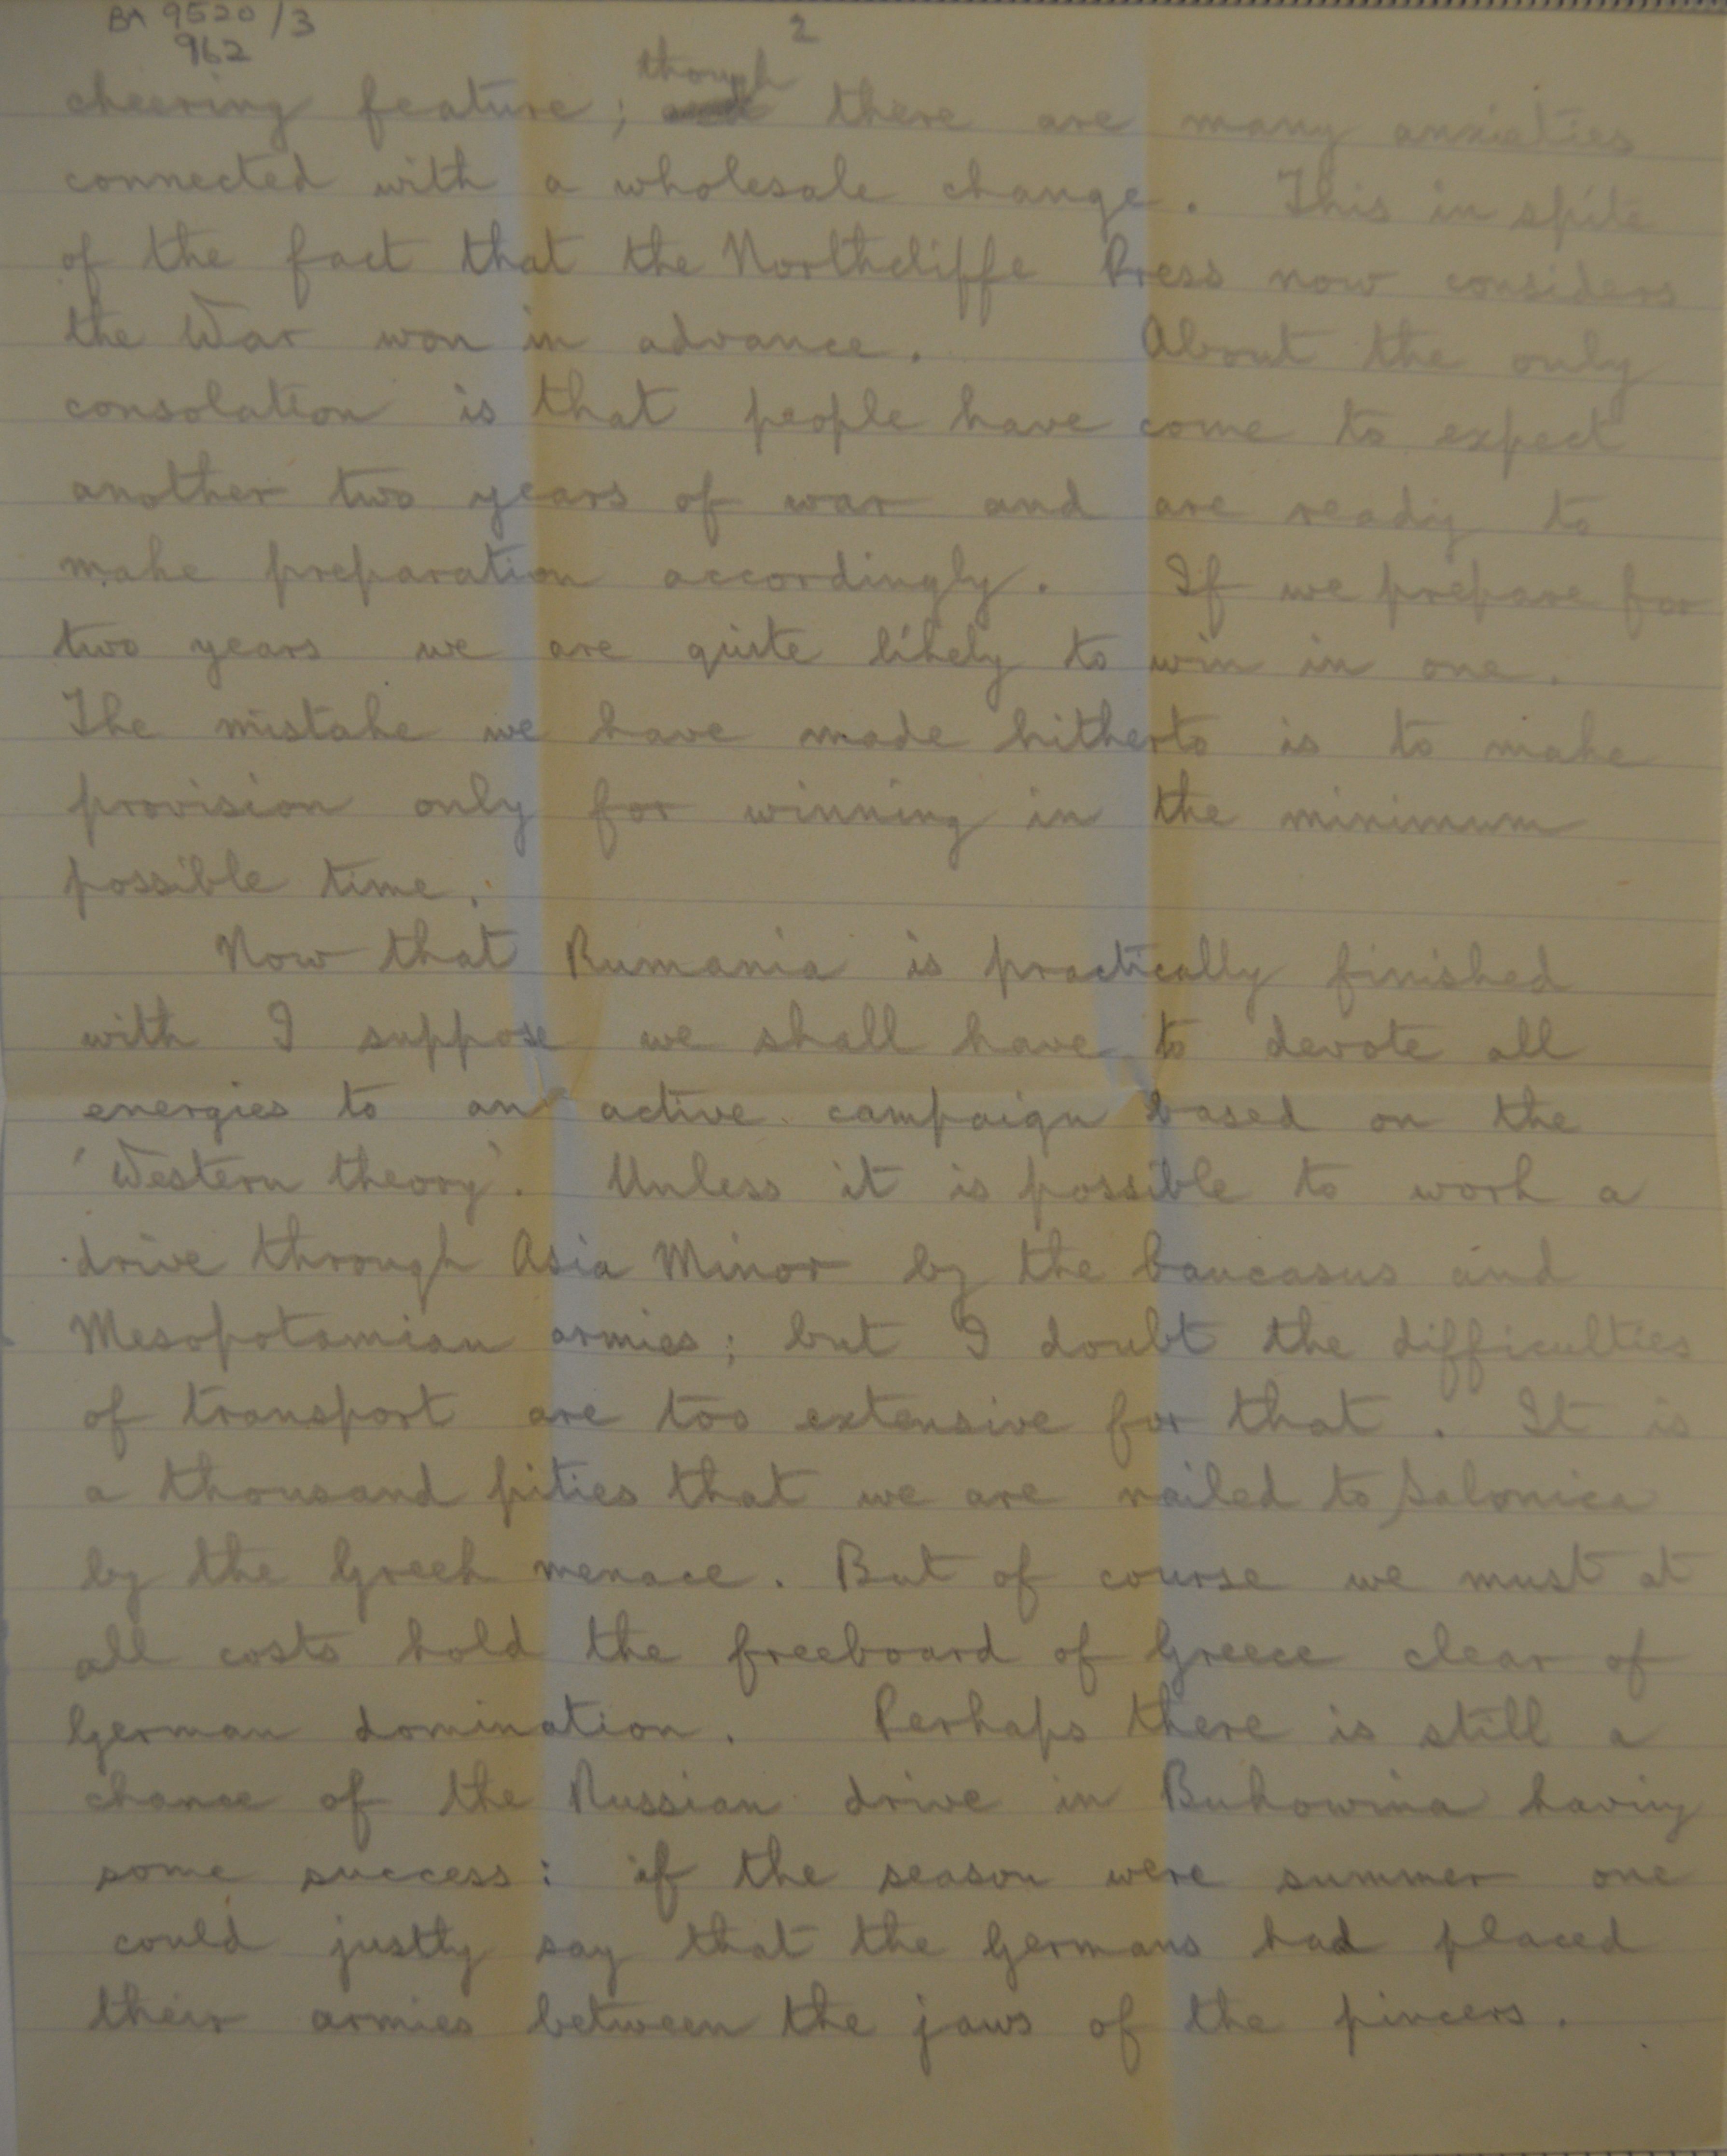 BA 9520/3
962
2
though
cheering feature; and there are many anxieties
connected with a wholesale change. This in spite
of the fact that the Northcliffe Press now considers
the War won in advance. About the only
consolation is that people have come to expect
another two years of war and are ready to
make preparation accordingly. If we prepare for
two years we are quite likely to win in one.
The mistake we have made hitherto is to make
provision only for winning in the minimum
possible time.
Now that Rumania is practically finished
with I suppose we shall have to devote all
energies to an active campaign based on the
'Western theory'. Unless it is possible to work a
drive through Asia Minor by the Caucasus and
Mesopotamian armies; but I doubt the difficulties
of transport are too extensive for that. It is
a thousand pities that we are nailed to Salonica
by the Greek menace. But of course we must at
all costs hold the freeboard of Greece clear of
German domination. Perhaps there is still a
chance of the Russian drive in Bukowina having
some success: if the season were summer one
could justly say that the Germans had placed
their armies between the jaws of the pincers.